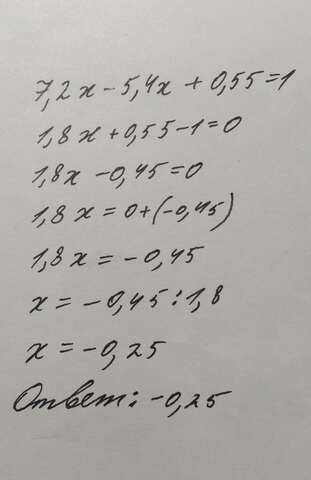 7,2x - 5,4x + 0,55 = 1
1,8x + 0,55 - 1 = 0
1,8x - 0,45 = 0
1,8x = 0 + (-0,45)
1,8x = -0,45
x = -0,45 : 1,8
x = -0,25
Ответ: -0,25